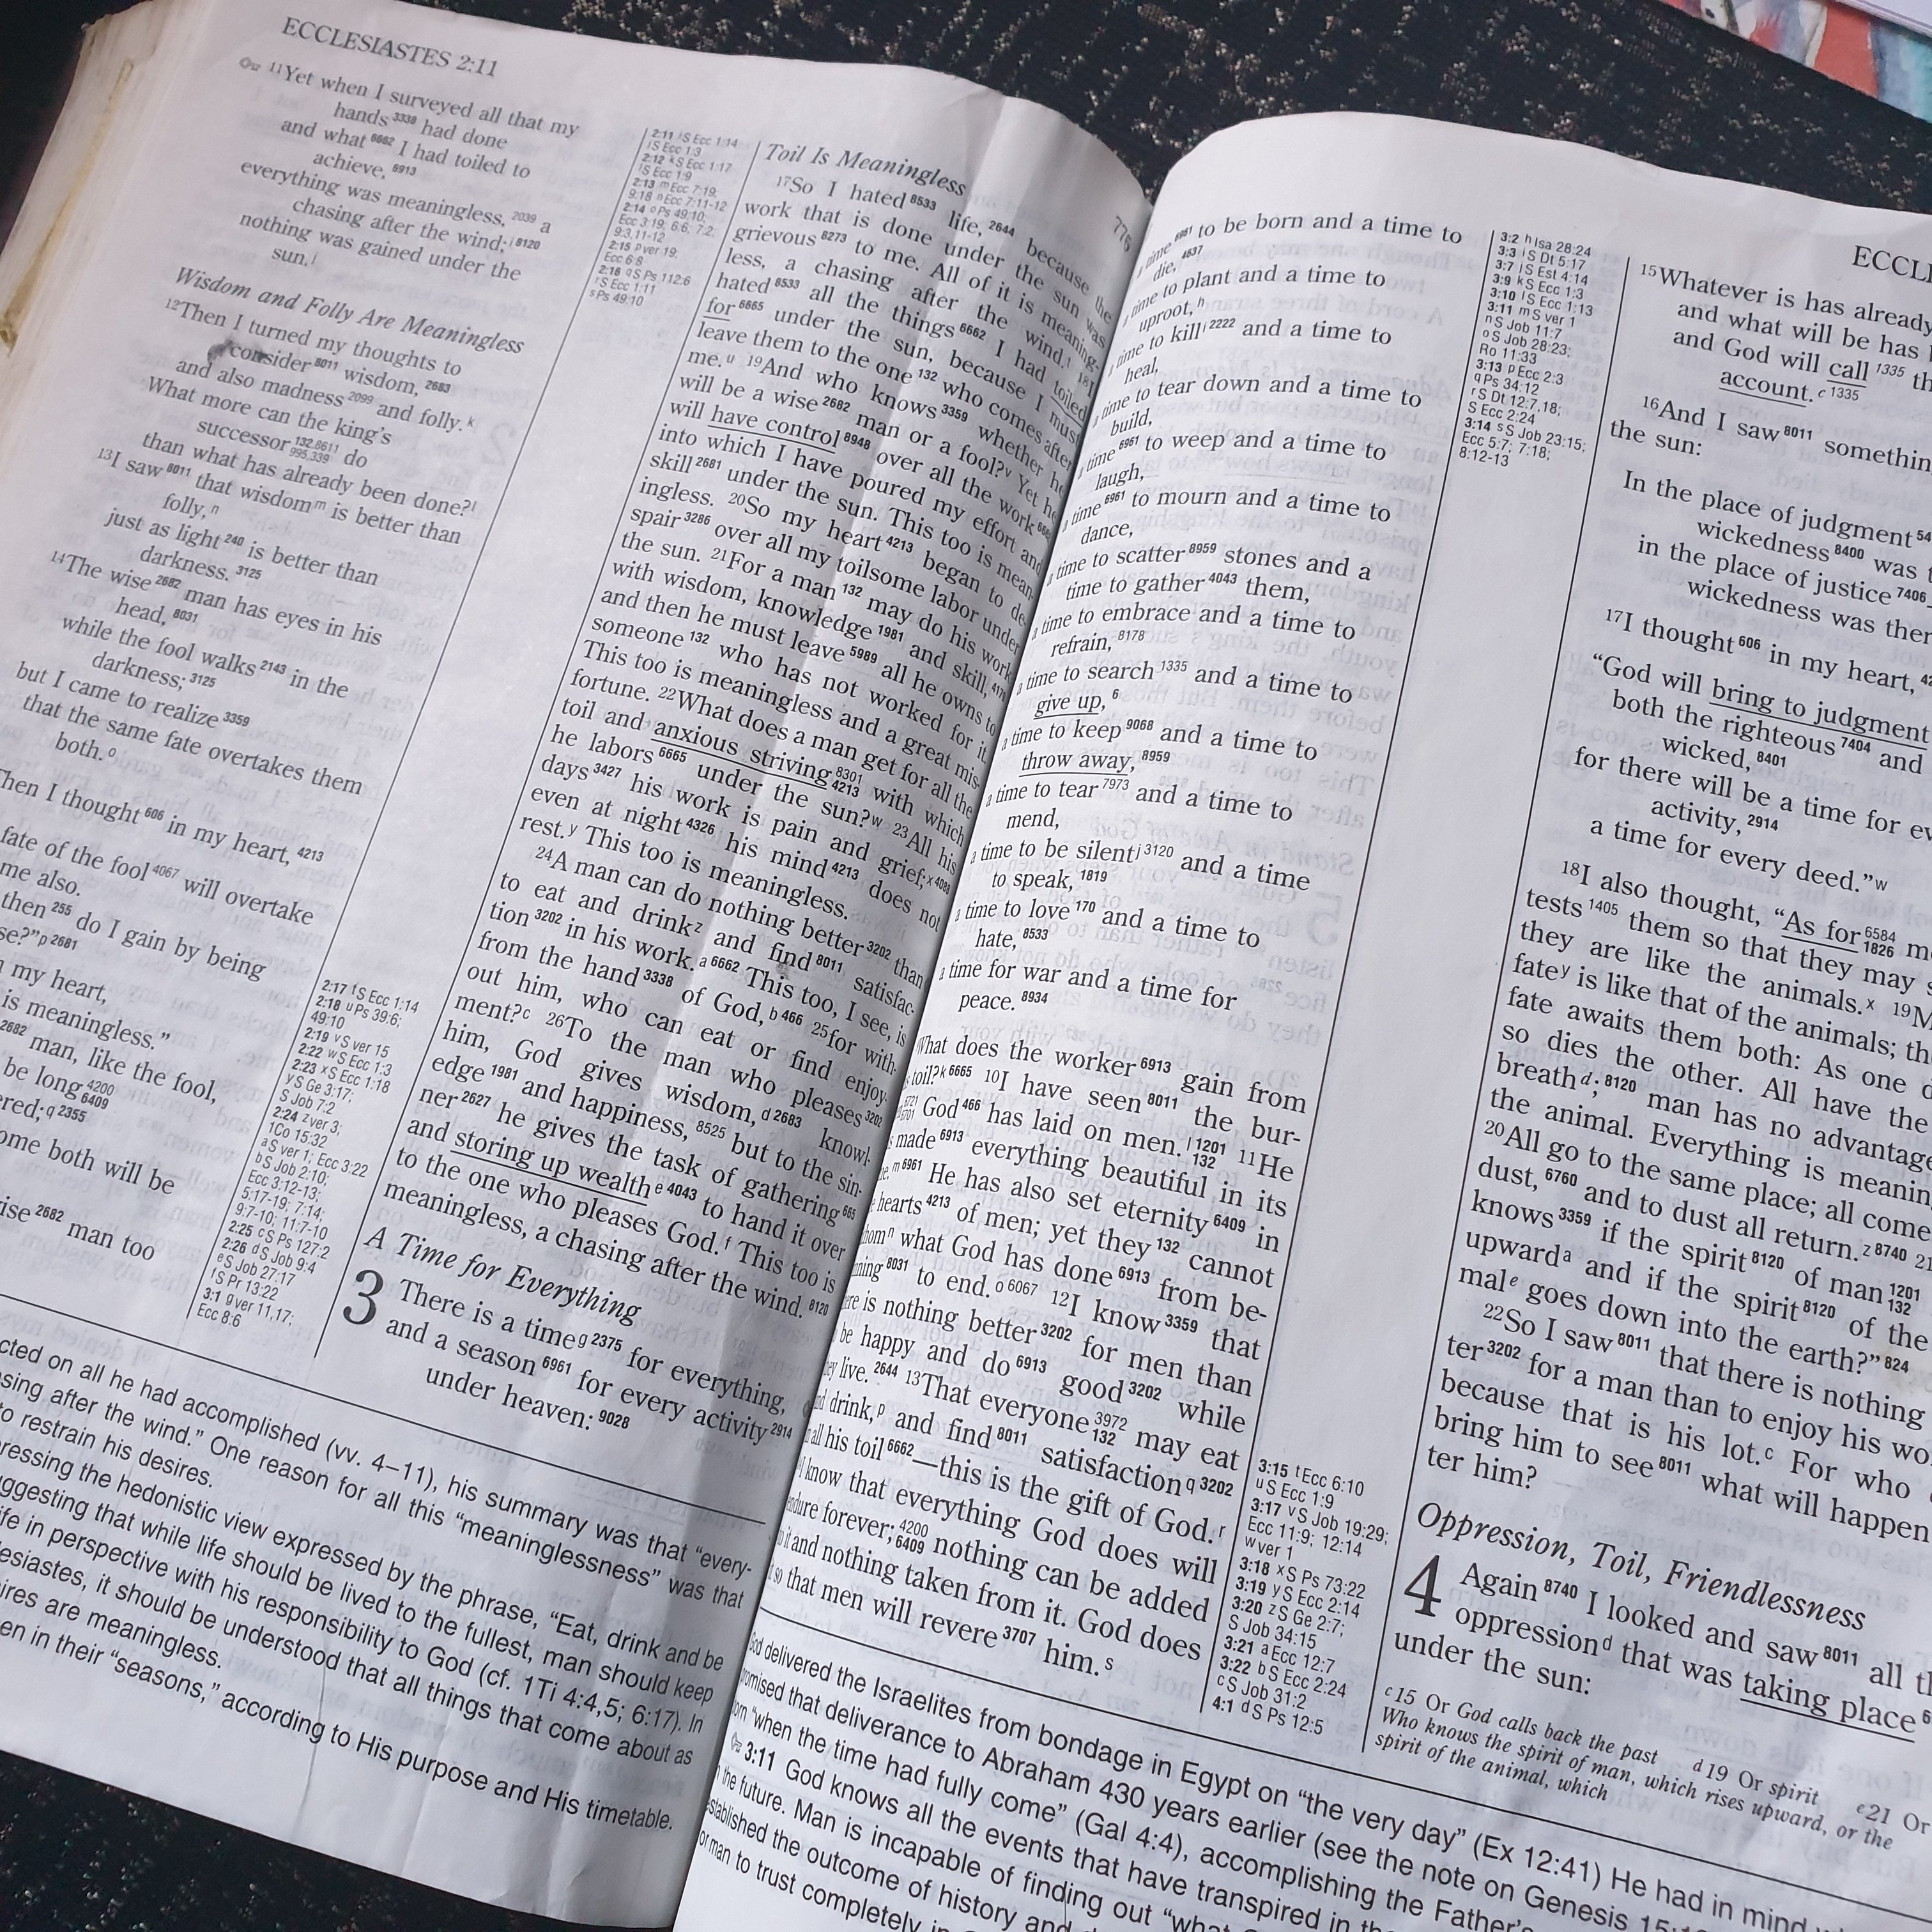 ECCLESIASTES 2:11
11Yet when I surveyed all that my
hands 3338 had done
and what 6662 I had toiled to
achieve, 6913
everything was meaningless, 2039 a
chasing after the wind; i 8120
nothing was gained under the
sun. j
Wisdom and Folly Are Meaningless
12Then I turned my thoughts to
consider 8011 wisdom, 2683
and also madness 2099 and folly. k
What more can the king's
successor 132,8611 995,339 do
than what has already been done? l
13I saw 8011 that wisdom m is better than
folly, n
just as light 240 is better than
darkness. 3125
14The wise 2682 man has eyes in his
head, 8031
while the fool walks 2143 in the
darkness; 3125
but I came to realize 3359
that the same fate overtakes them
both. o
Then I thought 606 in my heart, 4213
fate of the fool 4067 will overtake
me also.
then 255 do I gain by being
se?" p 2681
my heart,
is meaningless."
2682 man, like the fool,
be long 4200 6409
ered; q 2355
ome both will be
ise 2682 man too
2:11 i S Ecc 1:14
j S Ecc 1:3
2:12 k S Ecc 1:17
l S Ecc 1:9
2:13 m Ecc 7:19;
9:18 n Ecc 7:11-12
2:14 o Ps 49:10;
Ecc 3:19; 6:6; 7:2;
9:3,11-12
2:15 p ver 19;
Ecc 6:8
2:16 q S Ps 112:6
r S Ecc 1:11
s Ps 49:10
2:17 t S Ecc 1:14
2:18 u Ps 39:6;
49:10
2:19 v S ver 15
2:22 w S Ecc 1:3
2:23 x S Ecc 1:18
y S Ge 3:17;
S Job 7:2
2:24 z ver 3;
1Co 15:32
a S ver 1; Ecc 3:22
b S Job 2:10;
Ecc 3:12-13;
5:17-19; 7:14;
9:7-10; 11:7-10
2:25 c S Ps 127:2
2:26 d S Job 9:4
e S Job 27:17
f S Pr 13:22
3:1 g ver 11,17;
Ecc 8:6
Toil Is Meaningless
17So I hated 8533 life, 2644 because the
work that is done under the sun was
grievous 8273 to me. All of it is meaning-
less, a chasing after the wind. t 18I
hated 8533 all the things 6662 I had toiled
for 6665 under the sun, because I must
leave them to the one 132 who comes after
me. u 19And who knows 3359 whether he
will be a wise 2682 man or a fool? v Yet he
will have control 8948 over all the work
into which I have poured my effort and
skill 2681 under the sun. This too is mean-
ingless. 20So my heart 4213 began to de-
spair 3286 over all my toilsome labor under
the sun. 21For a man 132 may do his work
with wisdom, knowledge 1981 and skill, 4179
and then he must leave 5989 all he owns to
someone 132 who has not worked for it.
This too is meaningless and a great mis-
fortune. 22What does a man get for all the
toil and anxious striving 8301 4213 with which
he labors 6665 under the sun? w 23All his
days 3427 his work is pain and grief; x 4088
even at night 4326 his mind 4213 does not
rest. y This too is meaningless.
24A man can do nothing better 3202 than
to eat and drink z and find 8011 satisfac-
tion 3202 in his work. a 6662 This too, I see, is
from the hand 3338 of God, b 466 25for with-
out him, who can eat or find enjoy-
ment? c 26To the man who pleases 3202
him, God gives wisdom, d 2683 knowl-
edge 1981 and happiness, 8525 but to the sin-
ner 2627 he gives the task of gathering 665
and storing up wealth e 4043 to hand it over
to the one who pleases God. f This too is
meaningless, a chasing after the wind. 8120
A Time for Everything
3 There is a time g 2375 for everything,
and a season 6961 for every activity 2914
under heaven: 9028
cted on all he had accomplished (vv. 4–11), his summary was that "every-
sing after the wind." One reason for all this "meaninglessness" was that
to restrain his desires.
ressing the hedonistic view expressed by the phrase, "Eat, drink and be
ggesting that while life should be lived to the fullest, man should keep
ife in perspective with his responsibility to God (cf. 1Ti 4:4,5; 6:17). In
lesiastes, it should be understood that all things that come about as
ires are meaningless.
en in their "seasons," according to His purpose and His timetable.
776
a time 6961 to be born and a time to
die, 4637
a time to plant and a time to
uproot, h
a time to kill i 2222 and a time to
heal,
a time to tear down and a time to
build,
a time 6961 to weep and a time to
laugh,
a time 6961 to mourn and a time to
dance,
a time to scatter 8959 stones and a
time to gather 4043 them,
a time to embrace and a time to
refrain, 8178
a time to search 1335 and a time to
give up, 6
a time to keep 9068 and a time to
throw away, 8959
a time to tear 7973 and a time to
mend,
a time to be silent j 3120 and a time
to speak, 1819
a time to love 170 and a time to
hate, 8533
a time for war and a time for
peace. 8934
What does the worker 6913 gain from
toil? k 6665 10I have seen 8011 the bur-
God 466 has laid on men. l 1201 132 11He
made 6913 everything beautiful in its
e. m 6961 He has also set eternity 6409 in
hearts 4213 of men; yet they 132 cannot
hom n what God has done 6913 from be-
ning 8031 to end. o 6067 12I know 3359 that
ere is nothing better 3202 for men than
be happy and do 6913 good 3202 while
ey live. 2644 13That everyone 3972 132 may eat
nd drink, p and find 8011 satisfaction q 3202
all his toil 6662—this is the gift of God. r
I know that everything God does will
endure forever; 4200 6409 nothing can be added
to it and nothing taken from it. God does
it so that men will revere 3707 him. s
3:2 h Isa 28:24
3:3 i S Dt 5:17
3:7 j S Est 4:14
3:9 k S Ecc 1:3
3:10 l S Ecc 1:13
3:11 m S ver 1
n S Job 11:7
o S Job 28:23;
Ro 11:33
3:13 p Ecc 2:3
q Ps 34:12
r S Dt 12:7,18;
S Ecc 2:24
3:14 s S Job 23:15;
Ecc 5:7; 7:18;
8:12-13
3:15 t Ecc 6:10
u S Ecc 1:9
3:17 v S Job 19:29;
Ecc 11:9; 12:14
w ver 1
3:18 x S Ps 73:22
3:19 y S Ecc 2:14
3:20 z S Ge 2:7;
S Job 34:15
3:21 a Ecc 12:7
3:22 b S Ecc 2:24
c S Job 31:2
4:1 d S Ps 12:5
ECCL
15Whatever is has already
and what will be has
and God will call 1335 th
account. c 1335
16And I saw 8011 somethin
the sun:
In the place of judgment
wickedness 8400 was
in the place of justice 7406
wickedness was ther
17I thought 606 in my heart,
"God will bring to judgment
both the righteous 7404 and
wicked, 8401
for there will be a time for ev
activity, 2914
a time for every deed." w
18I also thought, "As for 6584 1826 m
tests 1405 them so that they may s
they are like the animals. x 19M
fate y is like that of the animals; th
fate awaits them both: As one d
so dies the other. All have the
breath d; 8120 man has no advantage
the animal. Everything is meanin
20All go to the same place; all come
dust, 6760 and to dust all return. z 8740 21
knows 3359 if the spirit 8120 of man 1201 132
upward a and if the spirit 8120 of the
mal e goes down into the earth?" 824
22So I saw 8011 that there is nothing
ter 3202 for a man than to enjoy his wo
because that is his lot. c For who
bring him to see 8011 what will happen
ter him?
Oppression, Toil, Friendlessness
4 Again 8740 I looked and saw 8011 all th
oppression d that was taking place 6
under the sun:
c 15 Or God calls back the past d 19 Or spirit e 21 Or
Who knows the spirit of man, which rises upward, or the
spirit of the animal, which
God delivered the Israelites from bondage in Egypt on "the very day" (Ex 12:41) He had in mind
romised that deliverance to Abraham 430 years earlier (see the note on Genesis
orn "when the time had fully come" (Gal 4:4), accomplishing the Father's
3:11 God knows all the events that have transpired in the
the future. Man is incapable of finding out "what
established the outcome of history and
for man to trust completely in